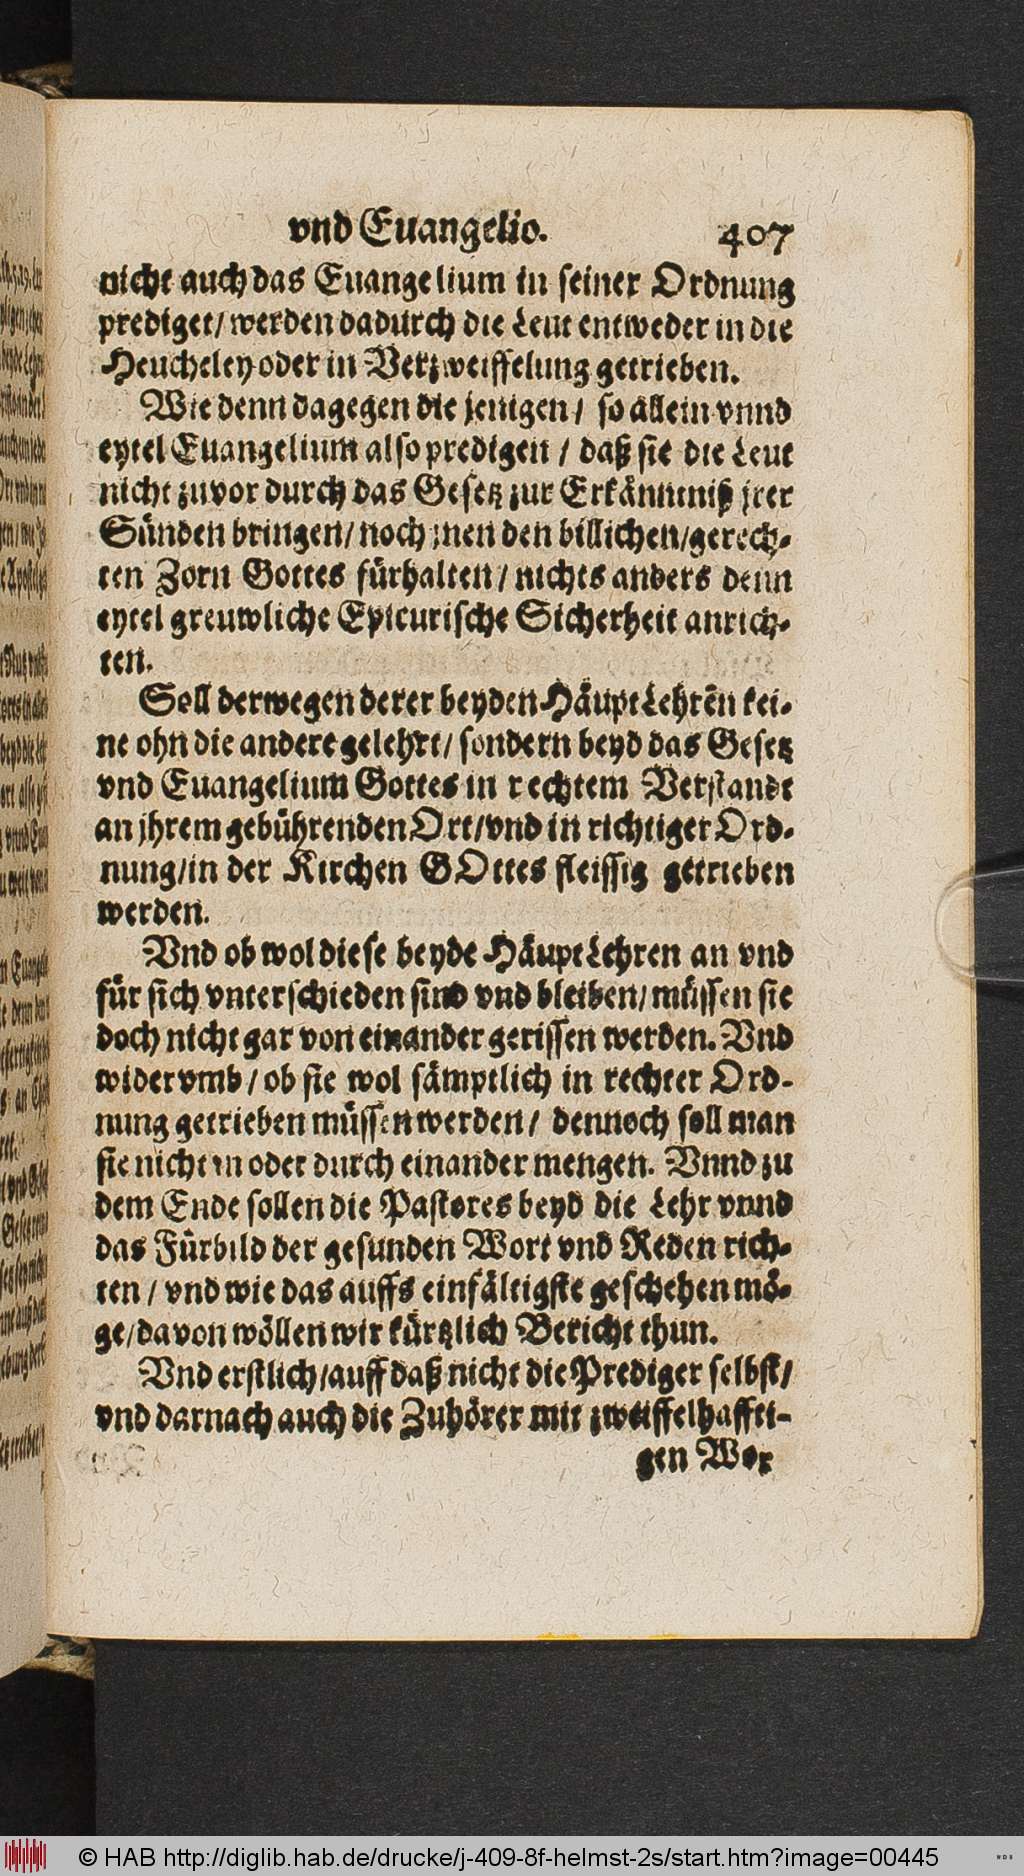 vnd Euangelio. 407
nicht auch das Euangelium in seiner Ordnung
prediget/ werden dadurch die Leut entweder in die
Heucheley oder in Verzweiffelung getrieben.
Wie denn dagegen die jenigen/ so allein vnnd
eytel Euangelium also predigen/ daß sie die Leut
nicht zuvor durch das Gesetz zur Erkäntniß jrer
Sünden bringen/ noch jnen den billichen/ gerech-
ten Zorn Gottes fürhalten/ nichts anders denn
eytel greuwliche Epicurische Sicherheit anrich-
ten.
Soll derwegen derer beyden HäuptLehrẽn kei-
ne ohn die andere gelehrt/ sondern beyd das Gesetz
vnd Euangelium Gottes in rechtem Verstande
an jhrem gebührenden Ort/ vnd in richtiger Ord-
nung/ in der Kirchen GOttes fleissig getrieben
werden.
Vnd ob wol diese beyde HäuptLehren an vnd
für sich vnterschieden sind vnd bleiben/ müssen sie
doch nicht gar von einander gerissen werden. Vnd
widervmb/ ob sie wol sämptlich in rechter Ord-
nung getrieben müssen werden/ dennoch soll man
sie nicht in oder durch einander mengen. Vnnd zu
dem Ende sollen die Pastores beyd die Lehr vnnd
das Fürbild der gesunden Wort vnd Reden rich-
ten/ vnd wie das auffs einfältigste geschehen mö-
ge/ davon wöllen wir kürtzlich Bericht thun.
Vnd erstlich/ auff daß nicht die Prediger selbst/
vnd darnach auch die Zuhörer mit zweiffelhaffti-
gen Wor
© HAB http://diglib.hab.de/drucke/j-409-8f-helmst-2s/start.htm?image=00445